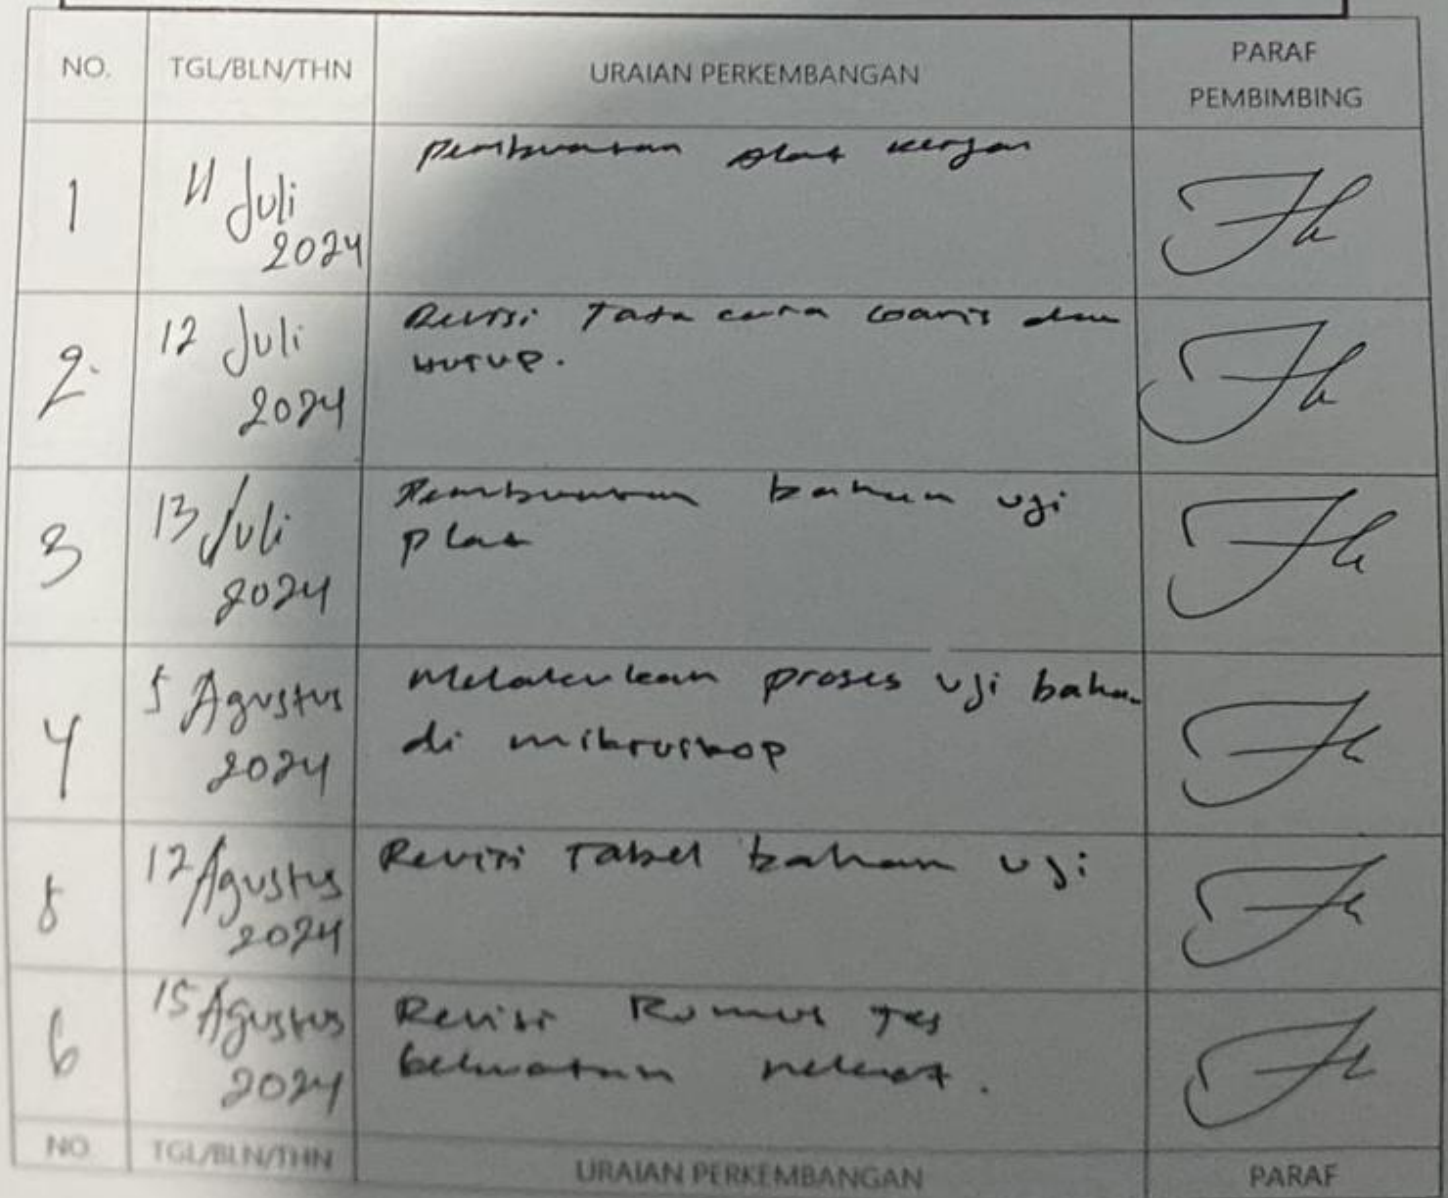 NO. TGL/BLN/THN URAIAN PERKEMBANGAN PARAF
PEMBIMBING
1 11 Juli Pembuatan alat kerja
2024
2. 12 Juli Revisi Tata cara baris dan
2024 hutup.
3 13 Juli Pembuatan bahan uji
2024 plat
4 5 Agustus Melakukan proses uji bahan
2024 di mikroskop
5 Agustus Revisi Tabel bahan uji
2024
6 15 Agustus Revisi Rumus Tes
2024 kekuatan
NO. TGL/BLN/THN URAIAN PERKEMBANGAN PARAF